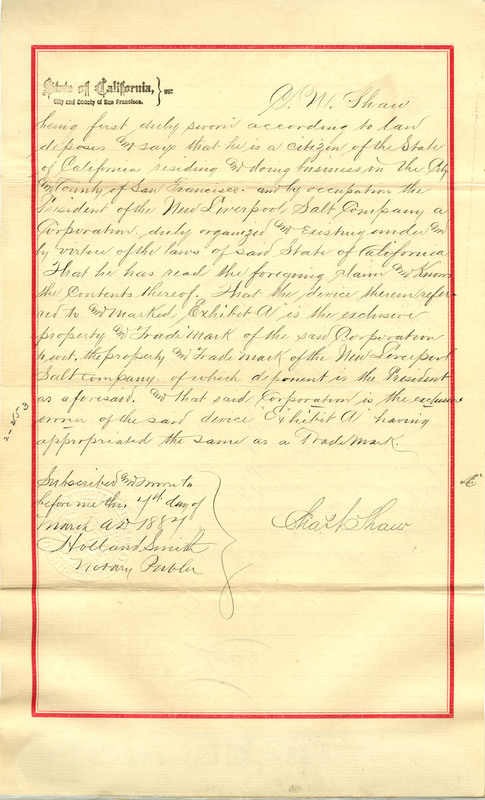 State of California, } ss:
City and County of San Francisco.
C. W. Shaw
being first duly sworn according to law
deposes and says that he is a citizen of the State
of California residing and doing business in the City
and County of San Francisco. and by occupation the
President of the New Liverpool Salt Company a
Corporation duly organized and existing under and
by virtue of the laws of said State of California
That he has read the foregoing claim and knows
the contents thereof. That the device therein refer-
red to and marked Exhibit A is the exclusive
property and Trade Mark of the said Corporation
to wit, the property and Trade mark of the New Liverpool
Salt Company of which deponent is the President
as aforesaid. and that said Corporation is the exclusive
owner of the said device "Exhibit A" having
appropriated the same as a Trade Mark
Subscribed and sworn to
before me this 7th day of
March AD 1884
Holland Smith
Notary Public
Shaw